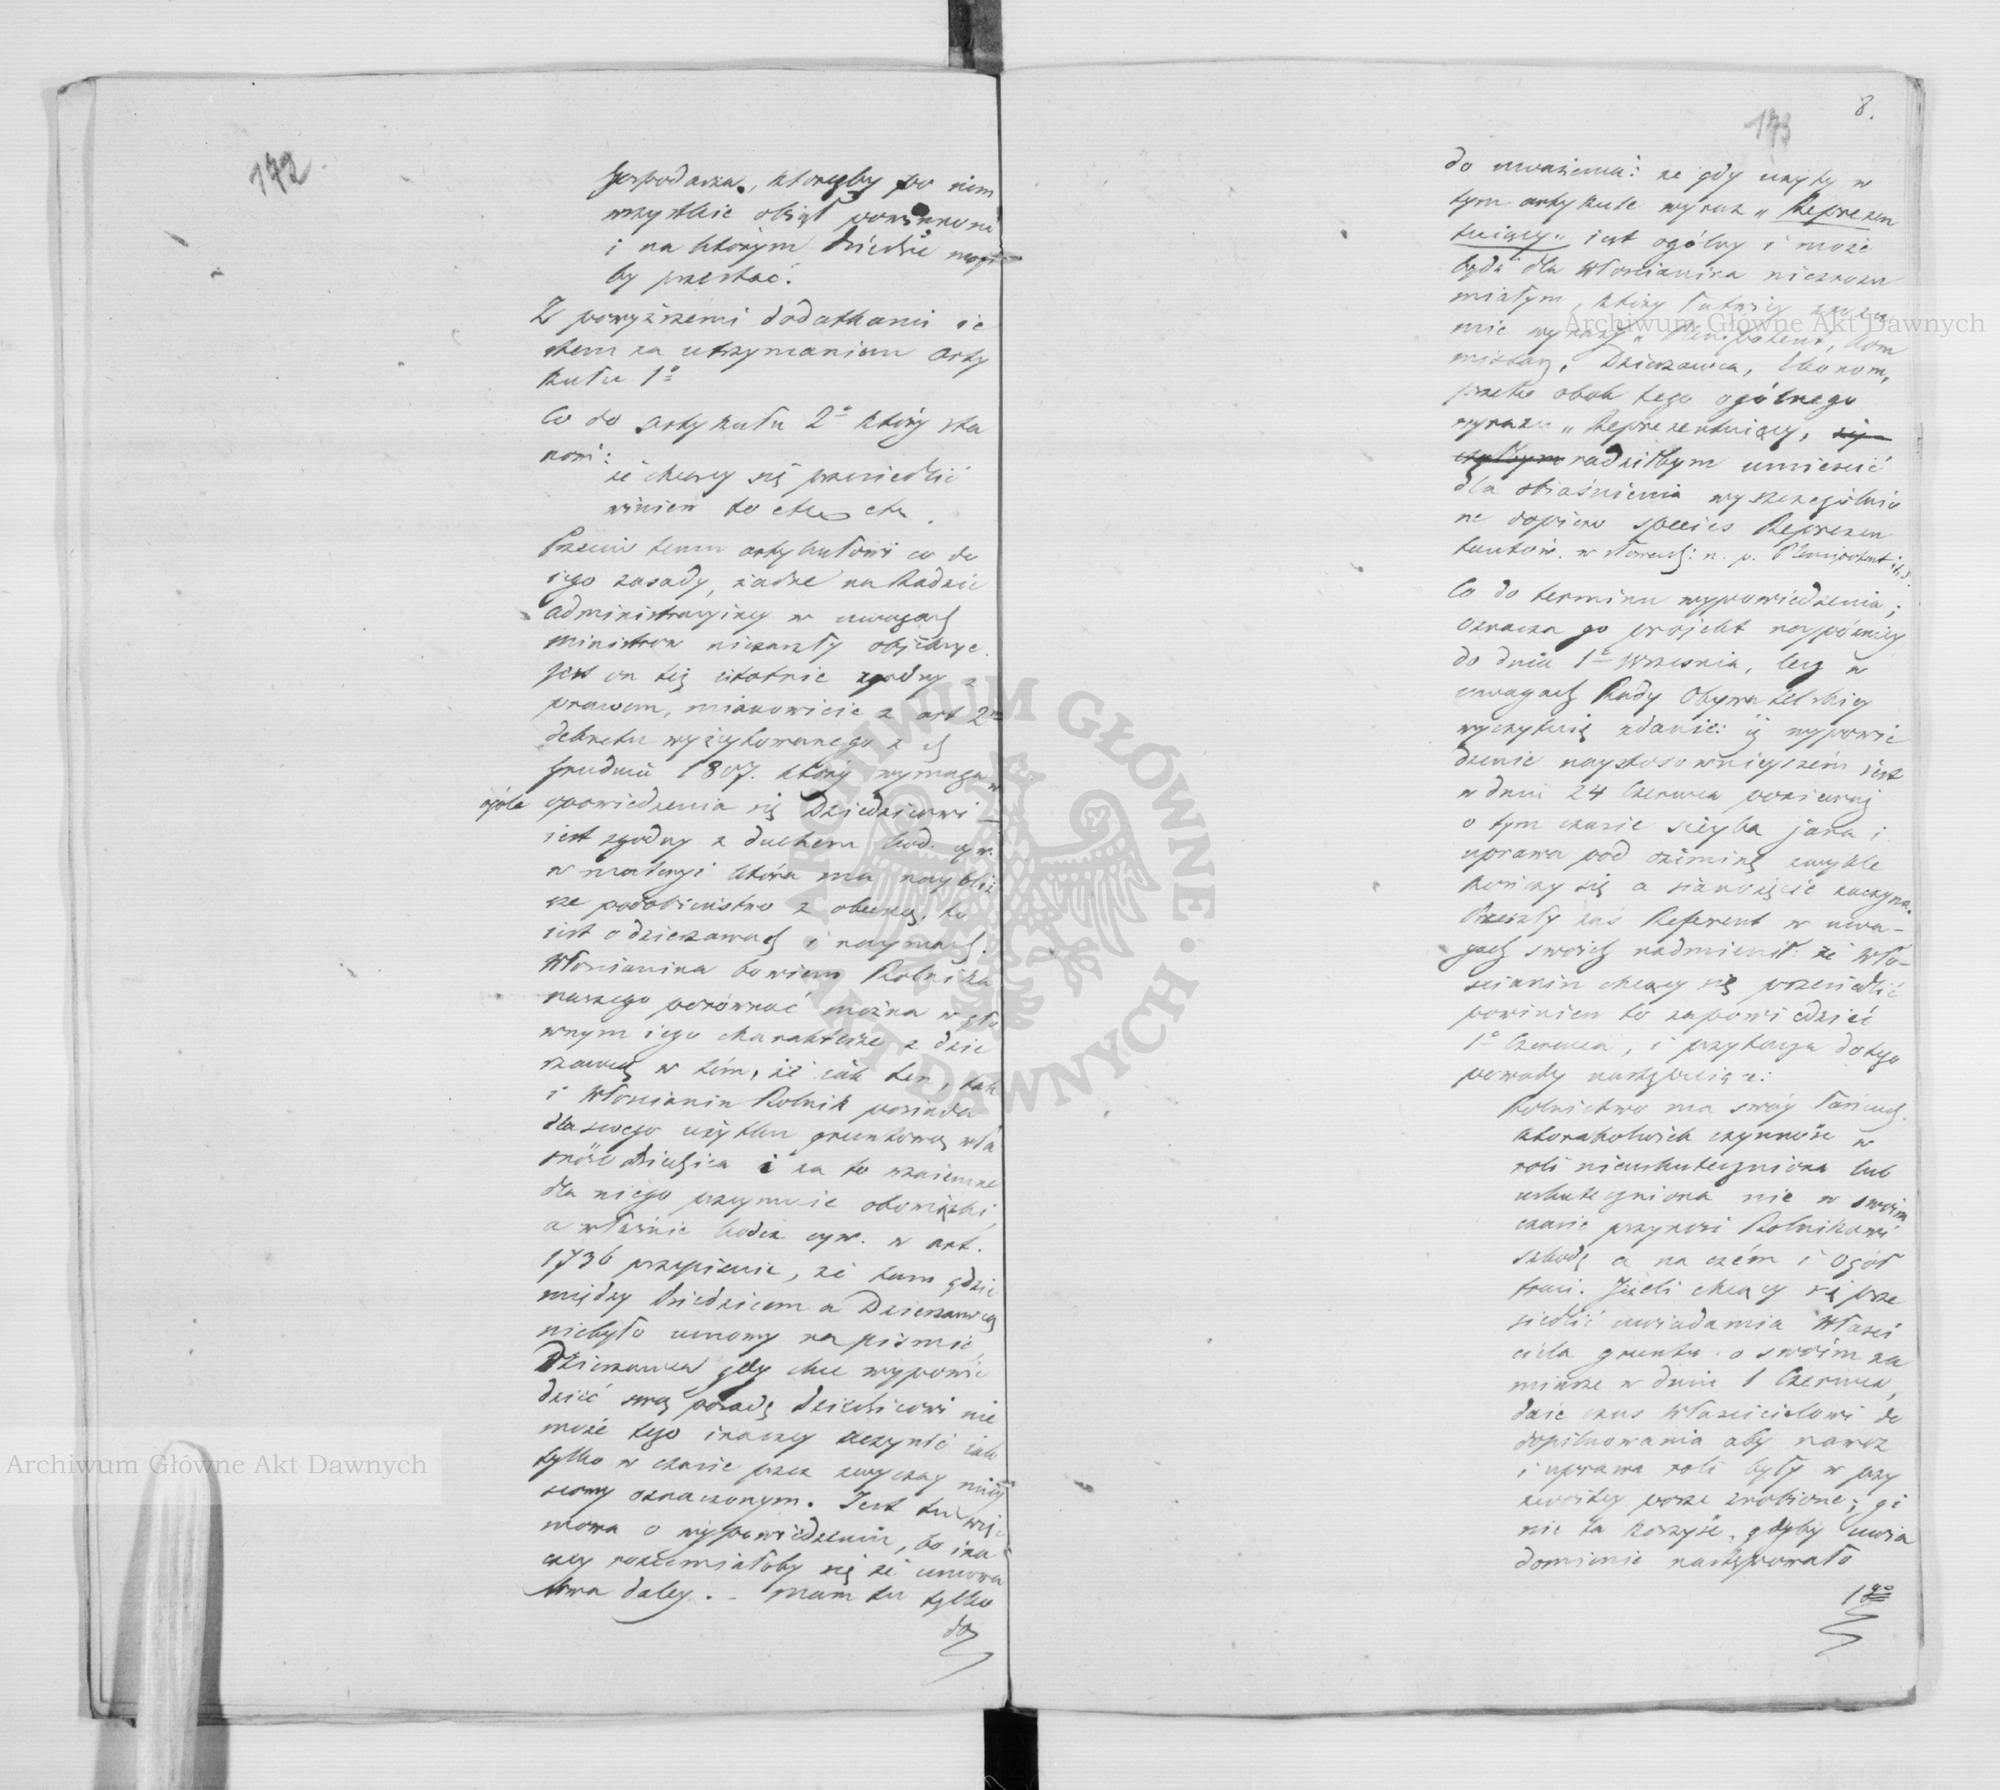 172
Gospodarza, któryby po nim
wszystkie objął powinności
i na którym Dziedzic mógł
by przestać.
Z powyższemi dodatkami ie
stem za utrzymaniem Arty
kułu 1º
Co do artykułu 2º który sta
nowi:
że chcący się przesiedlić
winien to etc etc.
Przeciw temu artykułowi co do
iego zasady, żadne na Radzie
Administracyiney w uwagach
Ministrów niezaszły obiekcye.
Jest on też istotnie zgodny z
prawem, mianowicie z art 2m
dekretu wyżcytowanego z
Grudnia 1807. który wymaga w
ogóle opowiedzenia się Dziedzicowi
iest zgodny z duchem Kod. cyw.
w materyi która ma naybliż
sze podobieństwo z obecną, to
iest o dzierżawach i naymach.
Włościanina bowiem Rolnika
naszego porównać można w głó
wnym iego charakterze z dzier
żawcą w tém, że iak ten, tak
i Włościanin Rolnik posiada
dla swego użytku gruntową wła
sność dziedzica i za to wzaiemne
dla niego przyimuie obowiązki,
a właśnie Kodex cyw. w art.
1736 przepisuie, że tam gdzie
między Dziedzicem a Dzierżawcą
niebyło umowy na piśmie,
Dzierżawca gdy chce wypowie
dzieć swą posadę Dziedzicowi nie
może tego inaczey uczynić iak
tylko w czasie przez zwyczay miey
scowy oznaczonym. Jest tu więc
mowa o wypowiedzeniu, bo ina
czey rozumiałoby się że umowa
trwa daley. – Mam tu tylko
do
8.
173
do uważenia: że gdy użyty w
tym artykule wyraz „Reprezen
tuiący" iest ogólny i może
bydź dla Włościanina niezrozu
miałym, który łatwiey zrozu
mie wyrazy „Plenipotent, Kom
missarz, Dzierżawca, Ekonom,
przeto obok tego ogólnego
wyrazu „Reprezentuiący,
radziłbym umieścić
dla obiaśnienia wyszczególnio
ne dopiero species Reprezen
tantów. w słowach: n. p. Plenipotent i t. d.
Co do terminu wypowiedzenia;
oznacza go projekt naypóźniey
do dnia 1º Września, lecz w
uwagach Rady Obywatelskiey
wyczytuię zdanie: iż wypowie
dzenie naystosownieyszém iest
w dniu 24 Czerwca ponieważ
o tym czasie sieyba jara i
uprawa pod oziminę zwykle
kończy się a sianożęcie zaczyna.
Przeszły zaś Referent w uwa-
gach swoich nadmienił: że Wło-
ścianin chcący się przesiedlić
powinien to zapowiedzieć
1º Czerwca, i przytacza do tego
powody następuiące:
Rolnictwo ma swóy łańcuch.
którakolwiek czynność w
roli nieuskuteczniona lub
uskuteczniona nie w swoim
czasie przynosi Rolnikowi
szkodę a na czém i Ogół
traci. Jeżeli chcący się prze
siedlić uwiadamia Właści
ciela gruntu o swoim za
miarze w dniu 1 Czerwca,
daie czas Właścicielowi do
dopilnowania aby nawóz
i uprawa roli były w przy
zwoitey porze zrobione; gi
nie ta korzyść, gdyby uwia
domienie następowało
1go